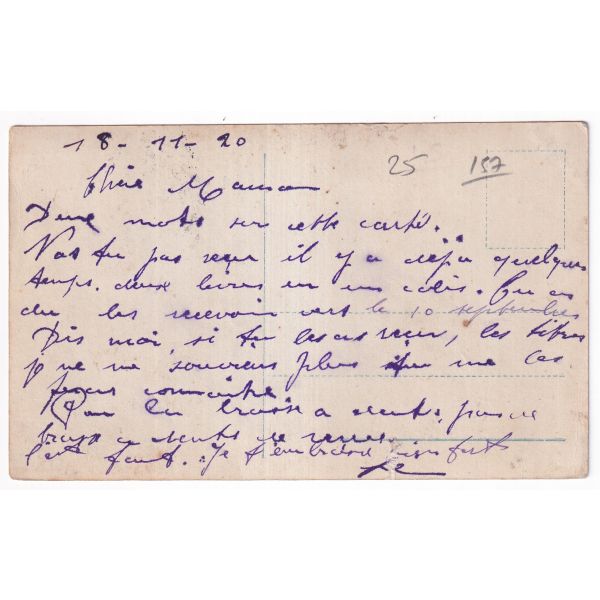 18-11-20
25 157
Chère Maman
Deux mots sur cette carte.
N'as tu pas reçu il y a déjà quelques
temps. deux livres en un colis. Tu as
du les recevoir vers le 10 septembre
Dis moi, si tu les as reçu, les titres
je ne me souviens plus tu me les
feras connaître
à vent. pas de
à vent de
C'est tout. Je t'embrasse bien fort